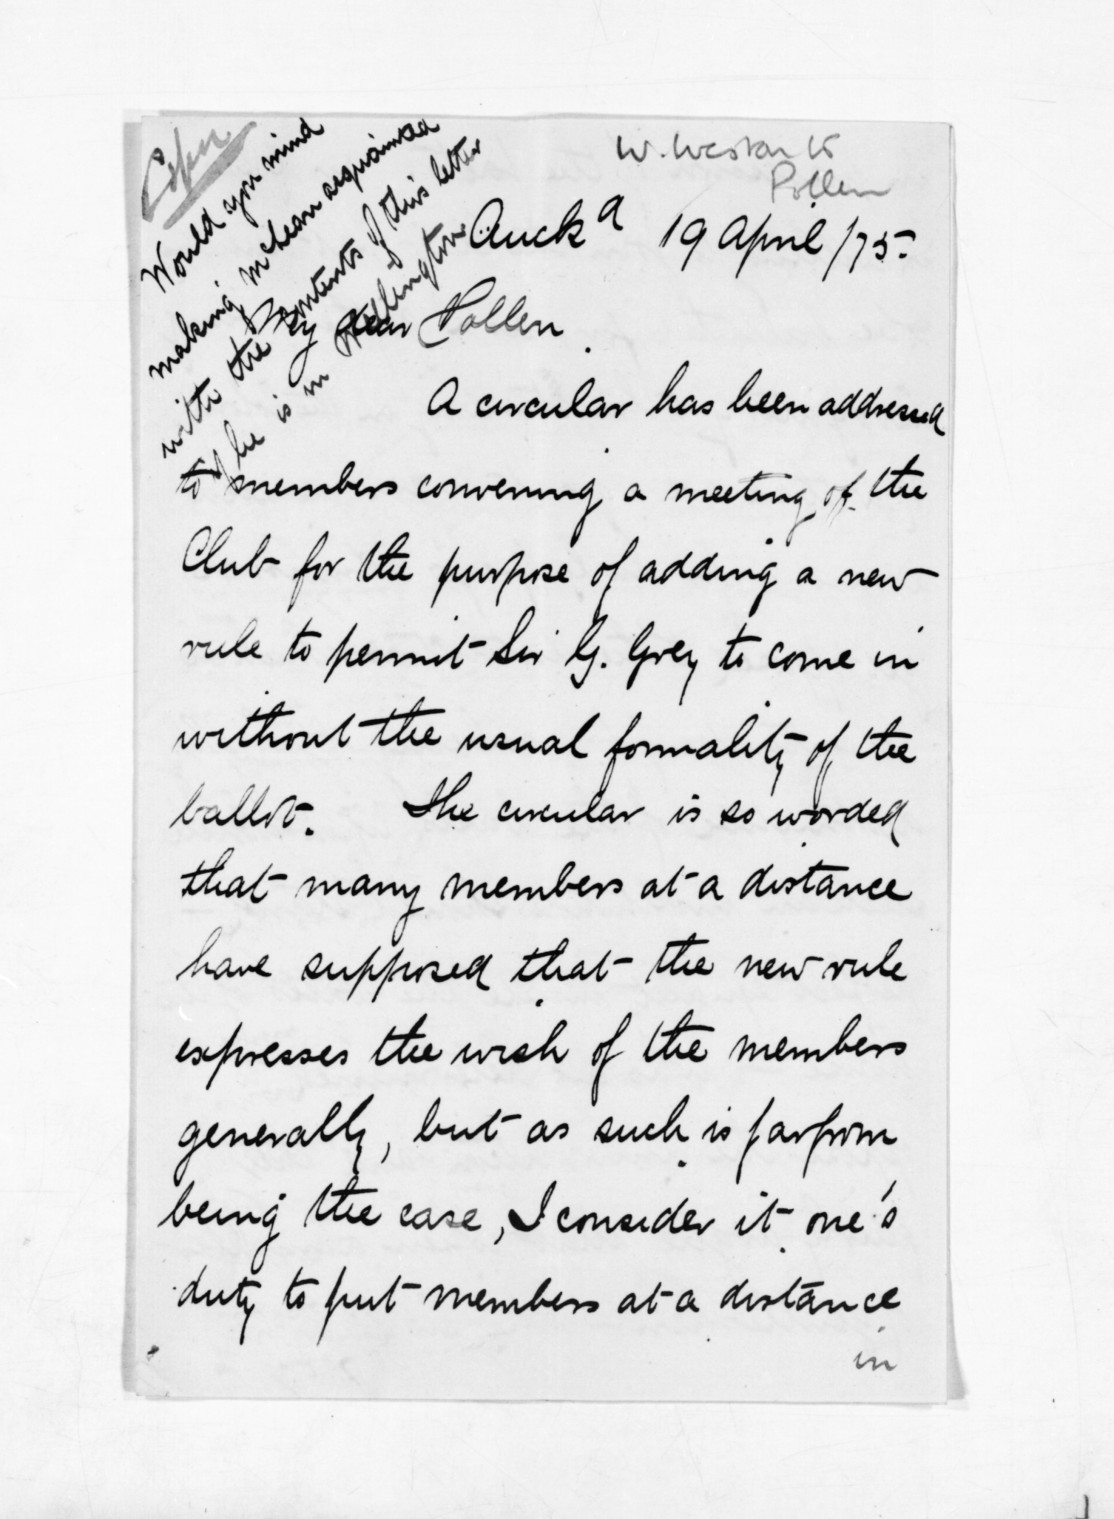 Copy
W. Weston to
Pollen
Would you mind
making McLean acquainted
with the contents of this letter
if he is in Wellington
Auckd 19 April /75.
My dear Pollen
A circular has been addressed
to members convening a meeting of the
Club for the purpose of adding a new
rule to permit Sir G. Grey to come in
without the usual formality of the
ballot. The circular is so worded
that many members at a distance
have supposed that the new rule
expresses the wish of the members
generally, but as such is far from
being the case, I consider it one's
duty to put members at a distance
in